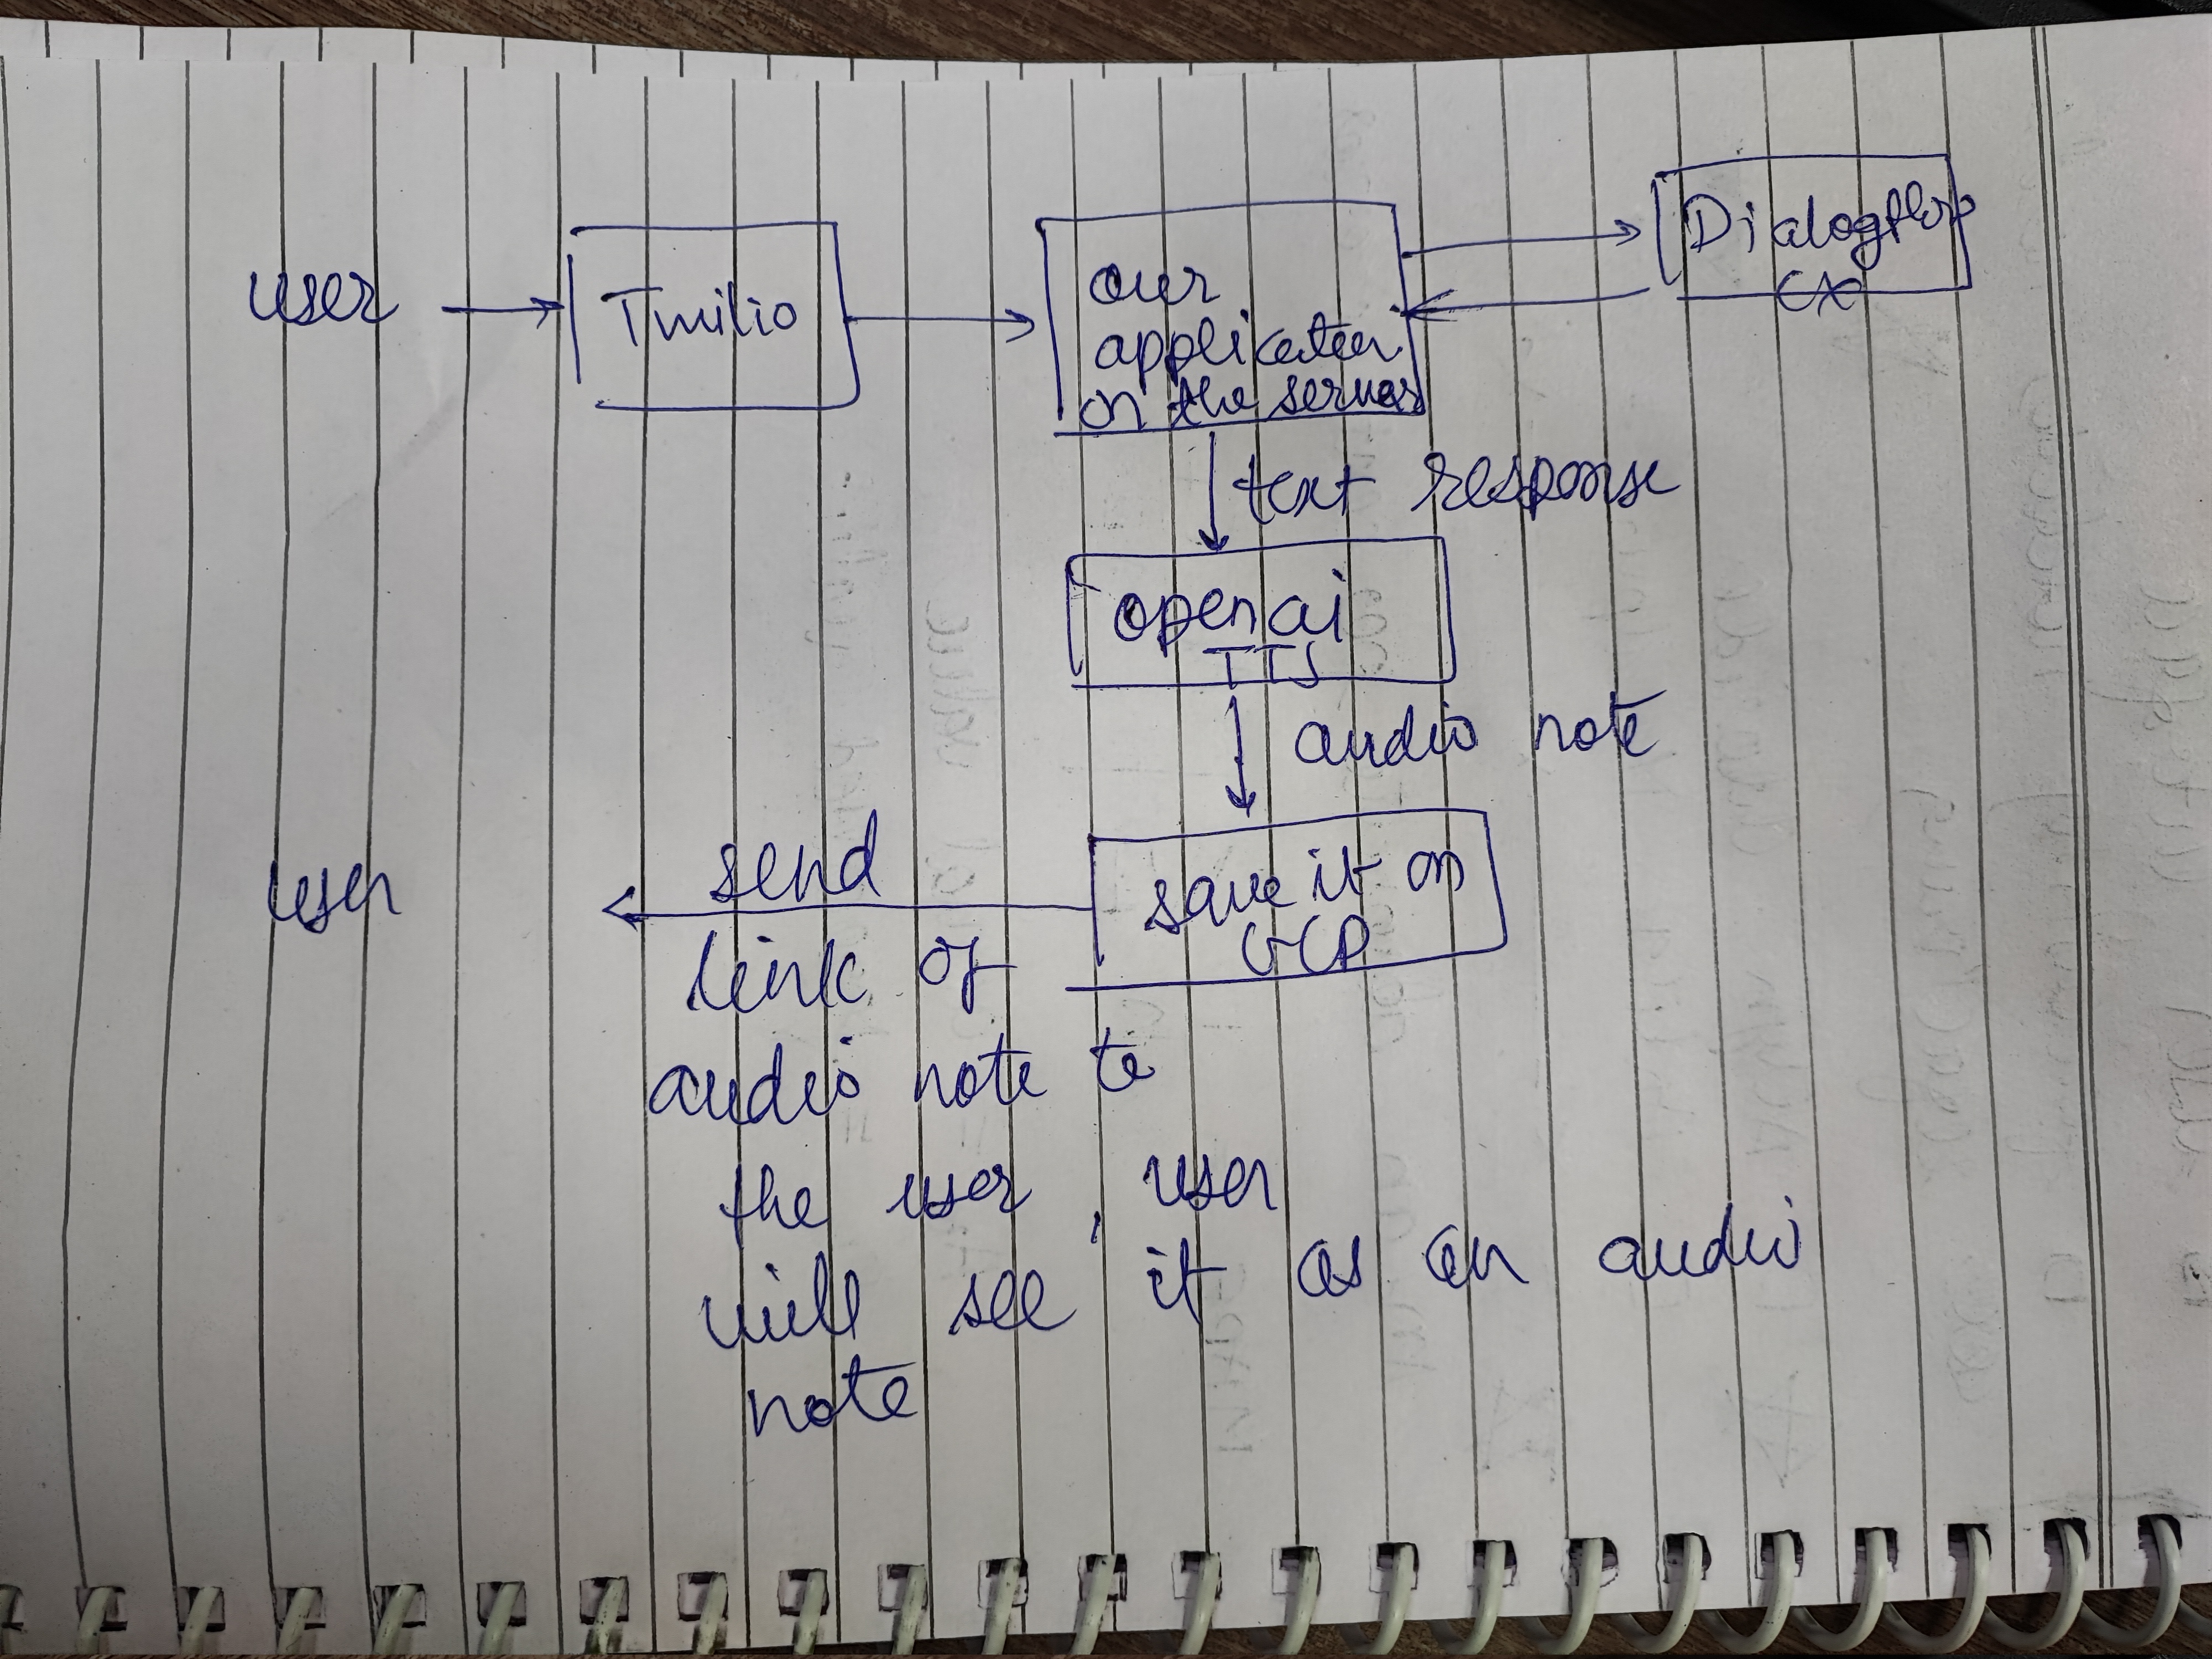 user
Twilio
our
application
on the server
Dialogflow
CX
text response
openai
TTS
audio note
save it on
GCP
user
send
link of
audio note to
the user, user
will see it as an audio
note